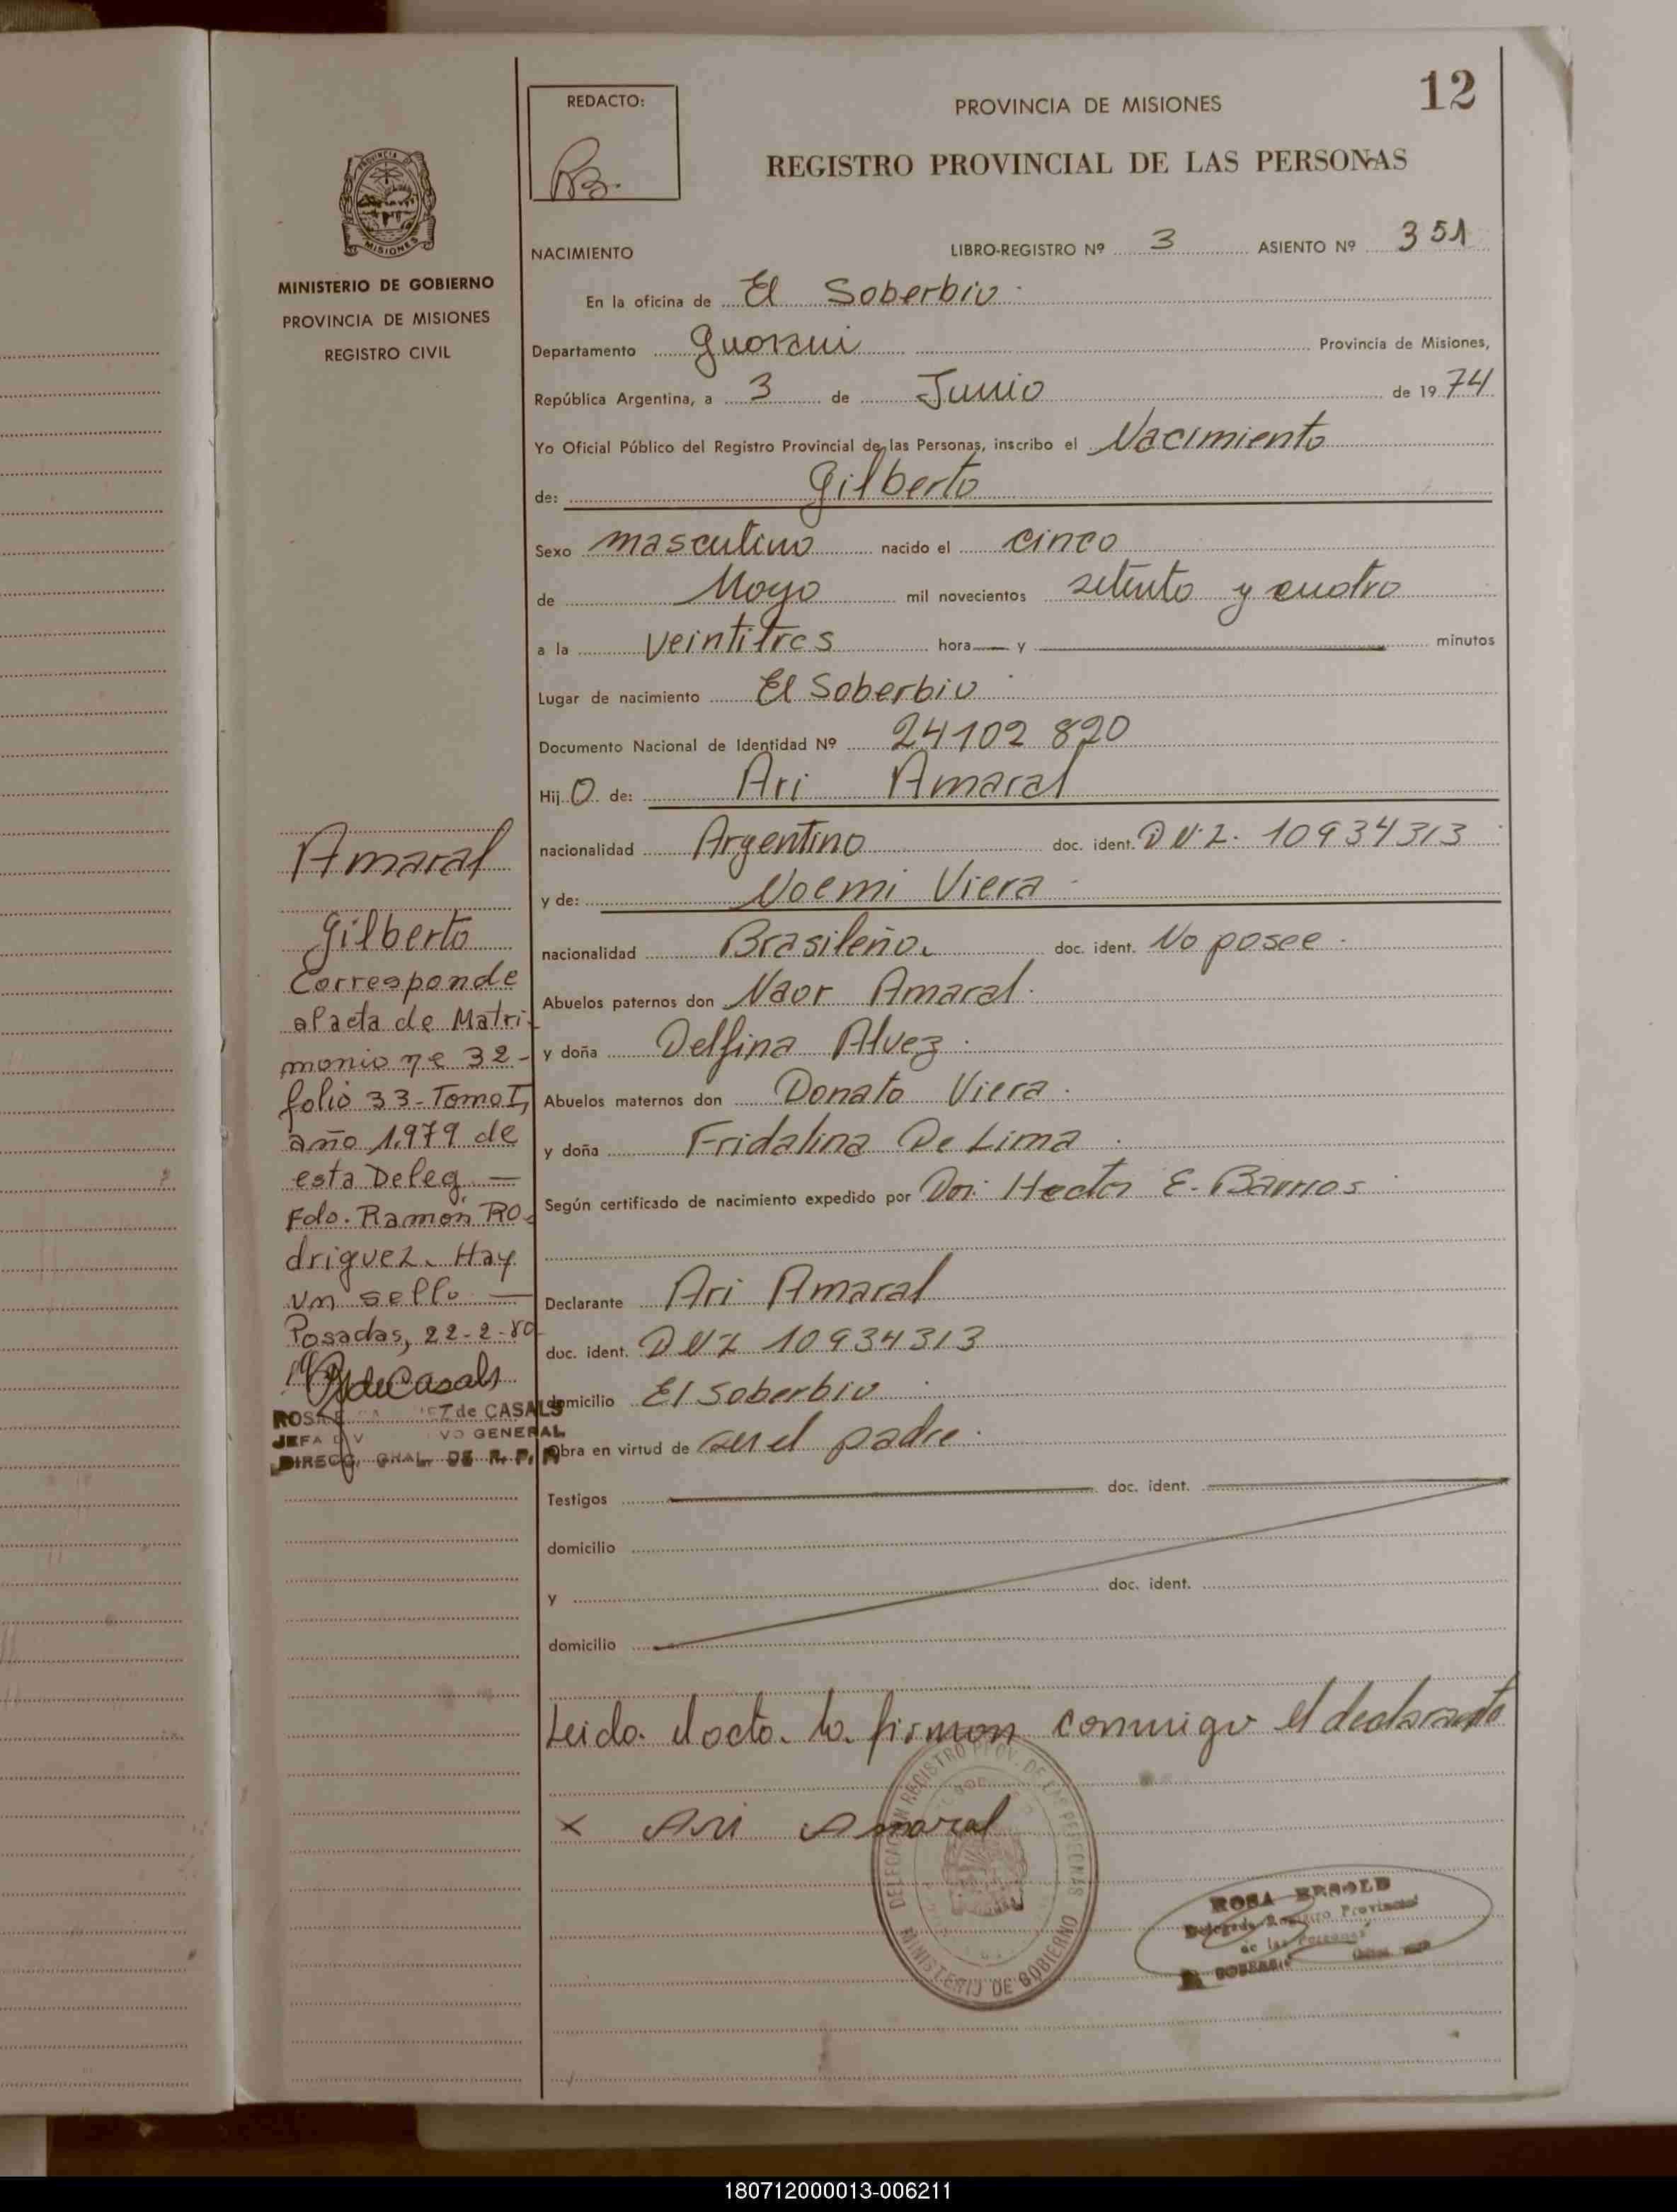 12
REDACTO:
PROVINCIA DE MISIONES
REGISTRO PROVINCIAL DE LAS PERSONAS
MISIONES
MINISTERIO DE GOBIERNO
PROVINCIA DE MISIONES
REGISTRO CIVIL
NACIMIENTO
LIBRO-REGISTRO Nº 3 ASIENTO Nº 351
En la oficina de El Soberbio
Departamento Guarani Provincia de Misiones,
República Argentina, a 3 de Junio de 1974
Yo Oficial Público del Registro Provincial de las Personas, inscribo el Nacimiento
de: Gilberto
Sexo masculino nacido el cinco
de Mayo mil novecientos setenta y cuatro
a la veintitres hora — y — minutos
Lugar de nacimiento El Soberbio
Documento Nacional de Identidad Nº 24102 820
Hijo de: Ari Amaral
nacionalidad Argentino doc. ident. D N I. 10934313
y de: Noemi Viera
nacionalidad Brasileña doc. ident. No posee
Abuelos paternos don Naor Amaral
y doña Delfina Alvez
Abuelos maternos don Donato Viera
y doña Fridalina De Lima
Según certificado de nacimiento expedido por Dr. Hector E. Barrios
Declarante Ari Amaral
doc. ident. D N I 10934313
domicilio El Soberbio
Obra en virtud de ser el padre
Testigos doc. ident.
domicilio
y doc. ident.
domicilio
Leida el acta la firman conmigo el declarante
x Ari Amaral
DELEGACION REGISTRO PROV. DE LAS PERSONAS
MINISTERIO DE GOBIERNO
ROSA
Delegada Registro Provincial
de las Personas
Amaral
Gilberto
Corresponde
al acta de Matri-
monio nº 32-
folio 33-Tomo I,
año 1.979 de
esta Deleg. —
Fdo. Ramón Ro-
driguez. Hay
un sello —
Posadas, 22-2-80
de CASALS
JEFA
GENERAL
DIRECC. GRAL. DE R. P. P.
180712000013-006211